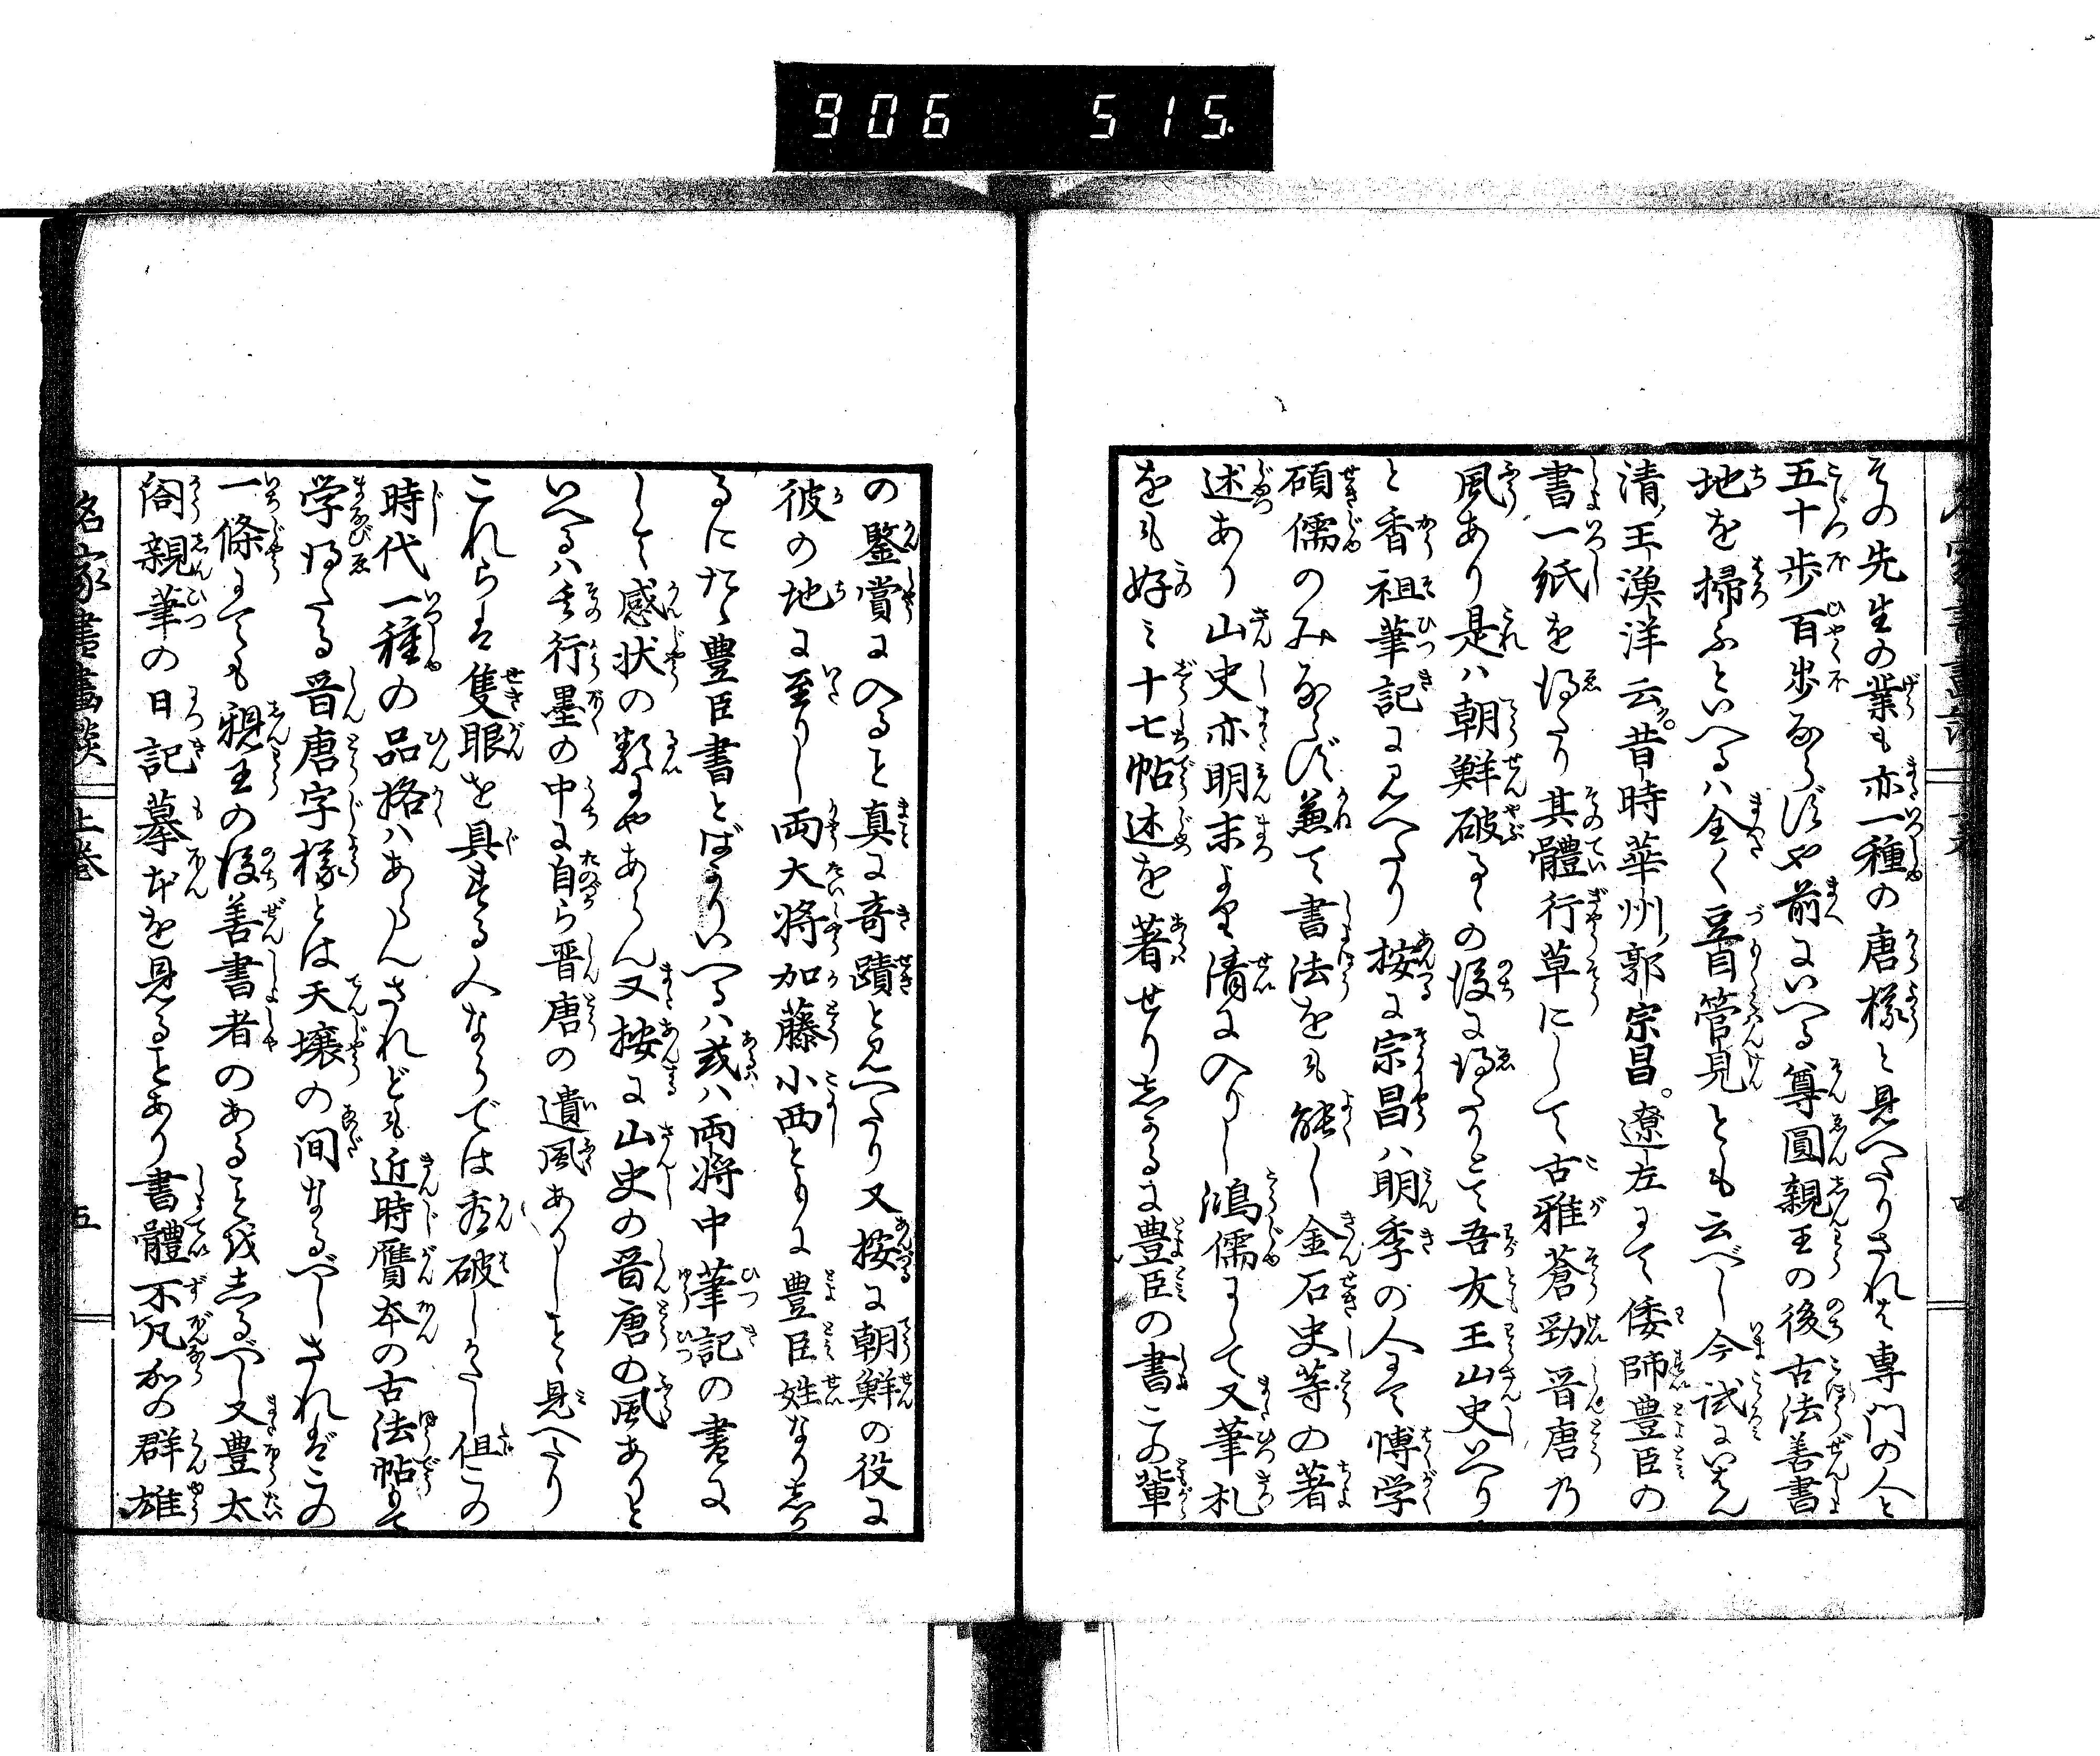 906 515.
その先生の業も亦一種の唐樣と見へたりされは専門の人と
五十歩百歩ならずや前にいへる尊圓親王の後古法善書
地を掃ふといへるハ全く豆自管見とも云べし今試にいはん
清ノ王漁洋云。昔時華州ノ郭宗昌。遼左にて倭師豊臣の
書一紙を得たり其體行草にして古雅蒼勁晋唐乃
風あり是ハ朝鮮破るゝの後に得たりとて吾友王山史いへり
と香祖筆記に見へたり按に宗昌ハ明季の人にて博学
碩儒のみならず兼て書法をも能し金石史等の著
述あり山史亦明末より清に入りし鴻儒にして又筆札
をも好ミ十七帖述を著せり志かるに豊臣の書この輩
の鑒賞に入ると真に奇蹟と見へたり又按に朝鮮の役に
彼の地に至りし両大将加藤小西ともに豊臣姓なり志か
るにたゝ豊臣書とばかりいへるハ或ハ両将中筆記の書に
して感状の類にやあらん又按に山史の晋唐の風ありと
いへるハ其行墨の中に自ら晋唐の遺風ありしとゝ見へたり
これらは隻眼を具する人ならでは看破しがたし但この
時代一種の品格ハあらんされども近時贋本の古法帖にて
学び得たる晋唐字樣とは天壌の間なるべしさればこの
一條にても親王の後善書者のあることを志るべし又豊太
閤親筆の日記摹本を見ることあり書體不凡かの群雄
名家書畫談 上巻 五